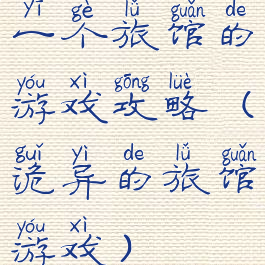 yī gè lǚ guǎn de
一个旅馆的
yóu xì gōng lüè
游戏攻略（
guǐ yì de lǚ guǎn
诡异的旅馆
yóu xì
游戏）